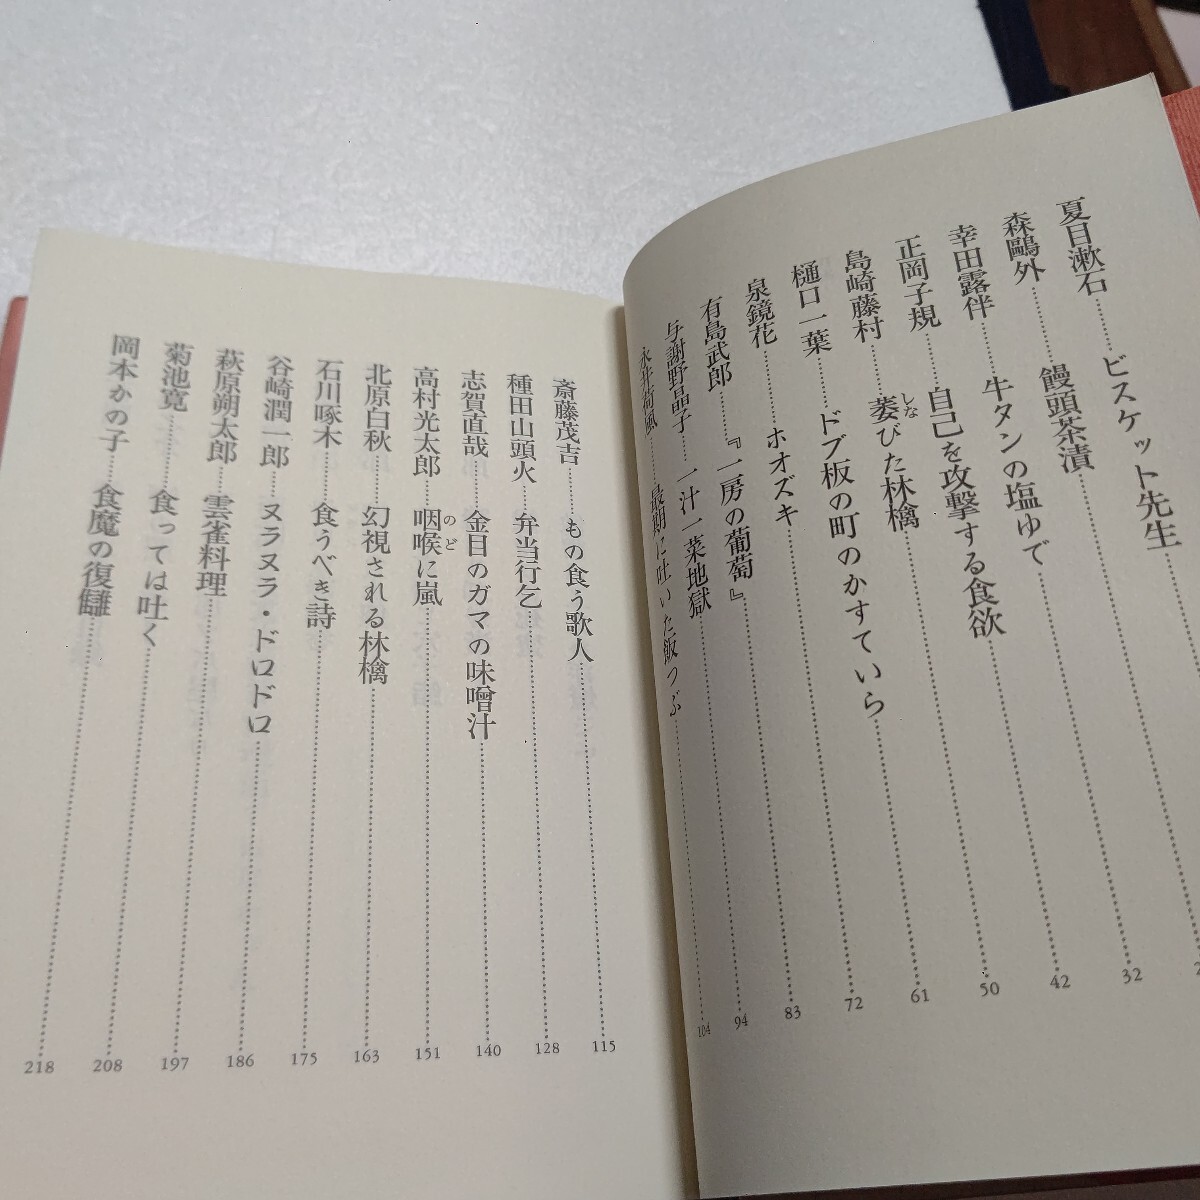 夏目漱石……ビスケット先生
森鷗外……饅頭茶漬
幸田露伴……牛タンの塩ゆで……32
正岡子規……自己を攻撃する食欲……42
島崎藤村……萎びた林檎……50
しな
樋口一葉……ドブ板の町のかすていら……61
泉鏡花……ホオズキ……72
有島武郎……『一房の葡萄』……83
与謝野晶子……一汁一菜地獄……94
永井荷風……最期に吐いた飯つぶ……104
斎藤茂吉……もの食う歌人……115
種田山頭火……弁当行乞……128
志賀直哉……金目のガマの味噌汁……140
高村光太郎……咽喉に嵐……151
のど
北原白秋……幻視される林檎……163
石川啄木……食うべき詩……175
谷崎潤一郎……ヌラヌラ・ドロドロ……186
萩原朔太郎……雲雀料理……197
菊池寛……食っては吐く……208
岡本かの子……食魔の復讎……218